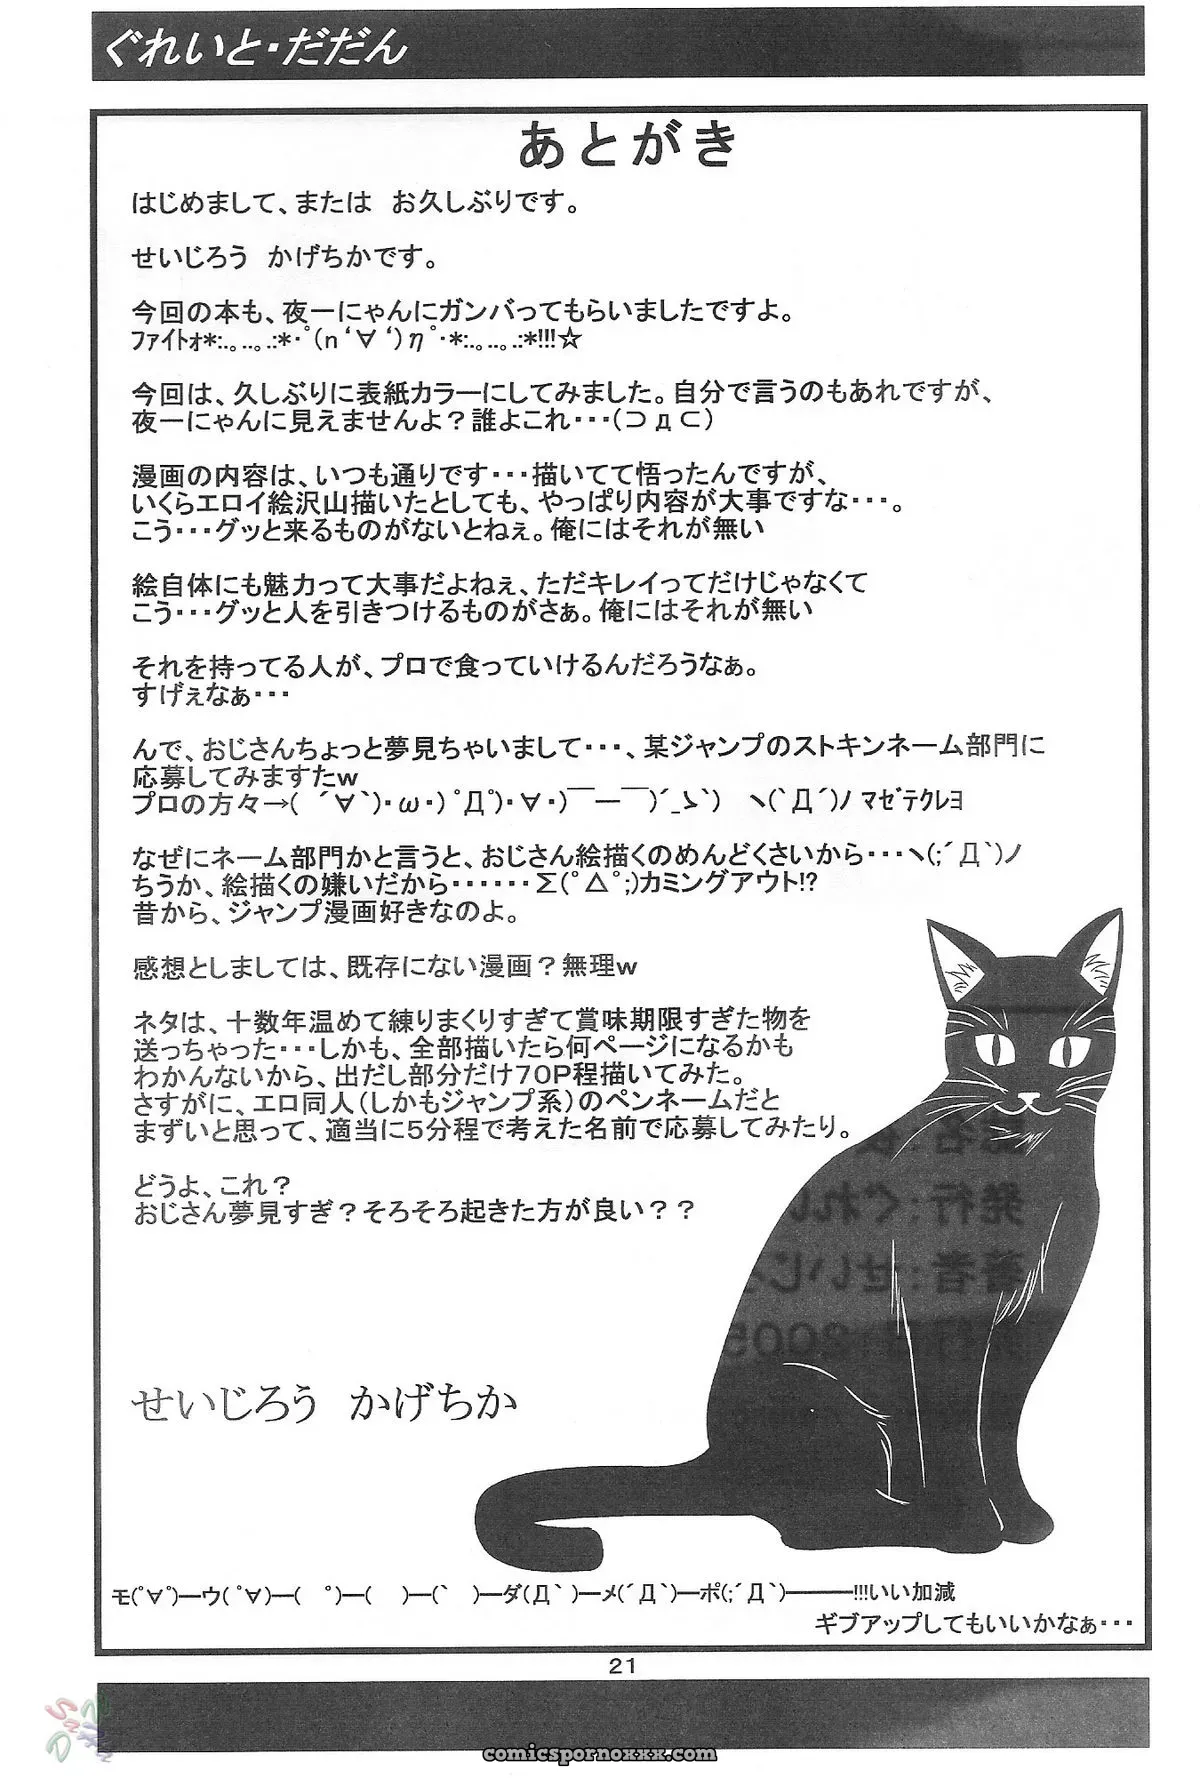 ぐれいと・だだん
あとがき
はじめまして、または　お久しぶりです。
せいじろう　かげちかです。
今回の本も、夜一にゃんにガンバってもらいましたですよ。
ﾌｧｲﾄｫ*:.｡..｡.:*･ﾟ(n‘∀‘)ηﾟ･*:.｡..｡.:*!!!☆
今回は、久しぶりに表紙カラーにしてみました。自分で言うのもあれですが、
夜一にゃんに見えませんよ？誰よこれ・・・(⊃д⊂)
漫画の内容は、いつも通りです・・・描いてて悟ったんですが、
いくらエロイ絵沢山描いたとしても、やっぱり内容が大事ですな・・・。
こう・・・グッと来るものがないとねぇ。俺にはそれが無い
絵自体にも魅力って大事だよねぇ、ただキレイってだけじゃなくて
こう・・・グッと人を引きつけるものがさぁ。俺にはそれが無い
それを持ってる人が、プロで食っていけるんだろうなぁ。
すげぇなぁ・・・
んで、おじさんちょっと夢見ちゃいまして・・・、某ジャンプのストキンネーム部門に
応募してみますたｗ
プロの方々→(　´∀`)･ω･)ﾟДﾟ)･∀･)￣ー￣)´_ゝ`)　ヽ(`Д´)ﾉ ﾏｾﾞﾃｸﾚﾖ
なぜにネーム部門かと言うと、おじさん絵描くのめんどくさいから・・・ヽ(;´Д`)ノ
ちうか、絵描くの嫌いだから・・・・・・Σ(ﾟ△ﾟ;)カミングアウト!?
昔から、ジャンプ漫画好きなのよ。
感想としましては、既存にない漫画？無理ｗ
ネタは、十数年温めて練りまくりすぎて賞味期限すぎた物を
送っちゃった・・・しかも、全部描いたら何ページになるかも
わかんないから、出だし部分だけ70P程描いてみた。
さすがに、エロ同人(しかもジャンプ系)のペンネームだと
まずいと思って、適当に5分程で考えた名前で応募してみたり。
どうよ、これ？
おじさん夢見すぎ？そろそろ起きた方が良い？？
せいじろう　かげちか
モ(ﾟ∀ﾟ)―ウ( ﾟ∀)―(　ﾟ)―(　)―(`　)―ダ(Д` )―メ(´Д`)―ポ(;´Д`)―――!!!いい加減
ギブアップしてもいいかなぁ・・・
21
comicspornoxxx.com